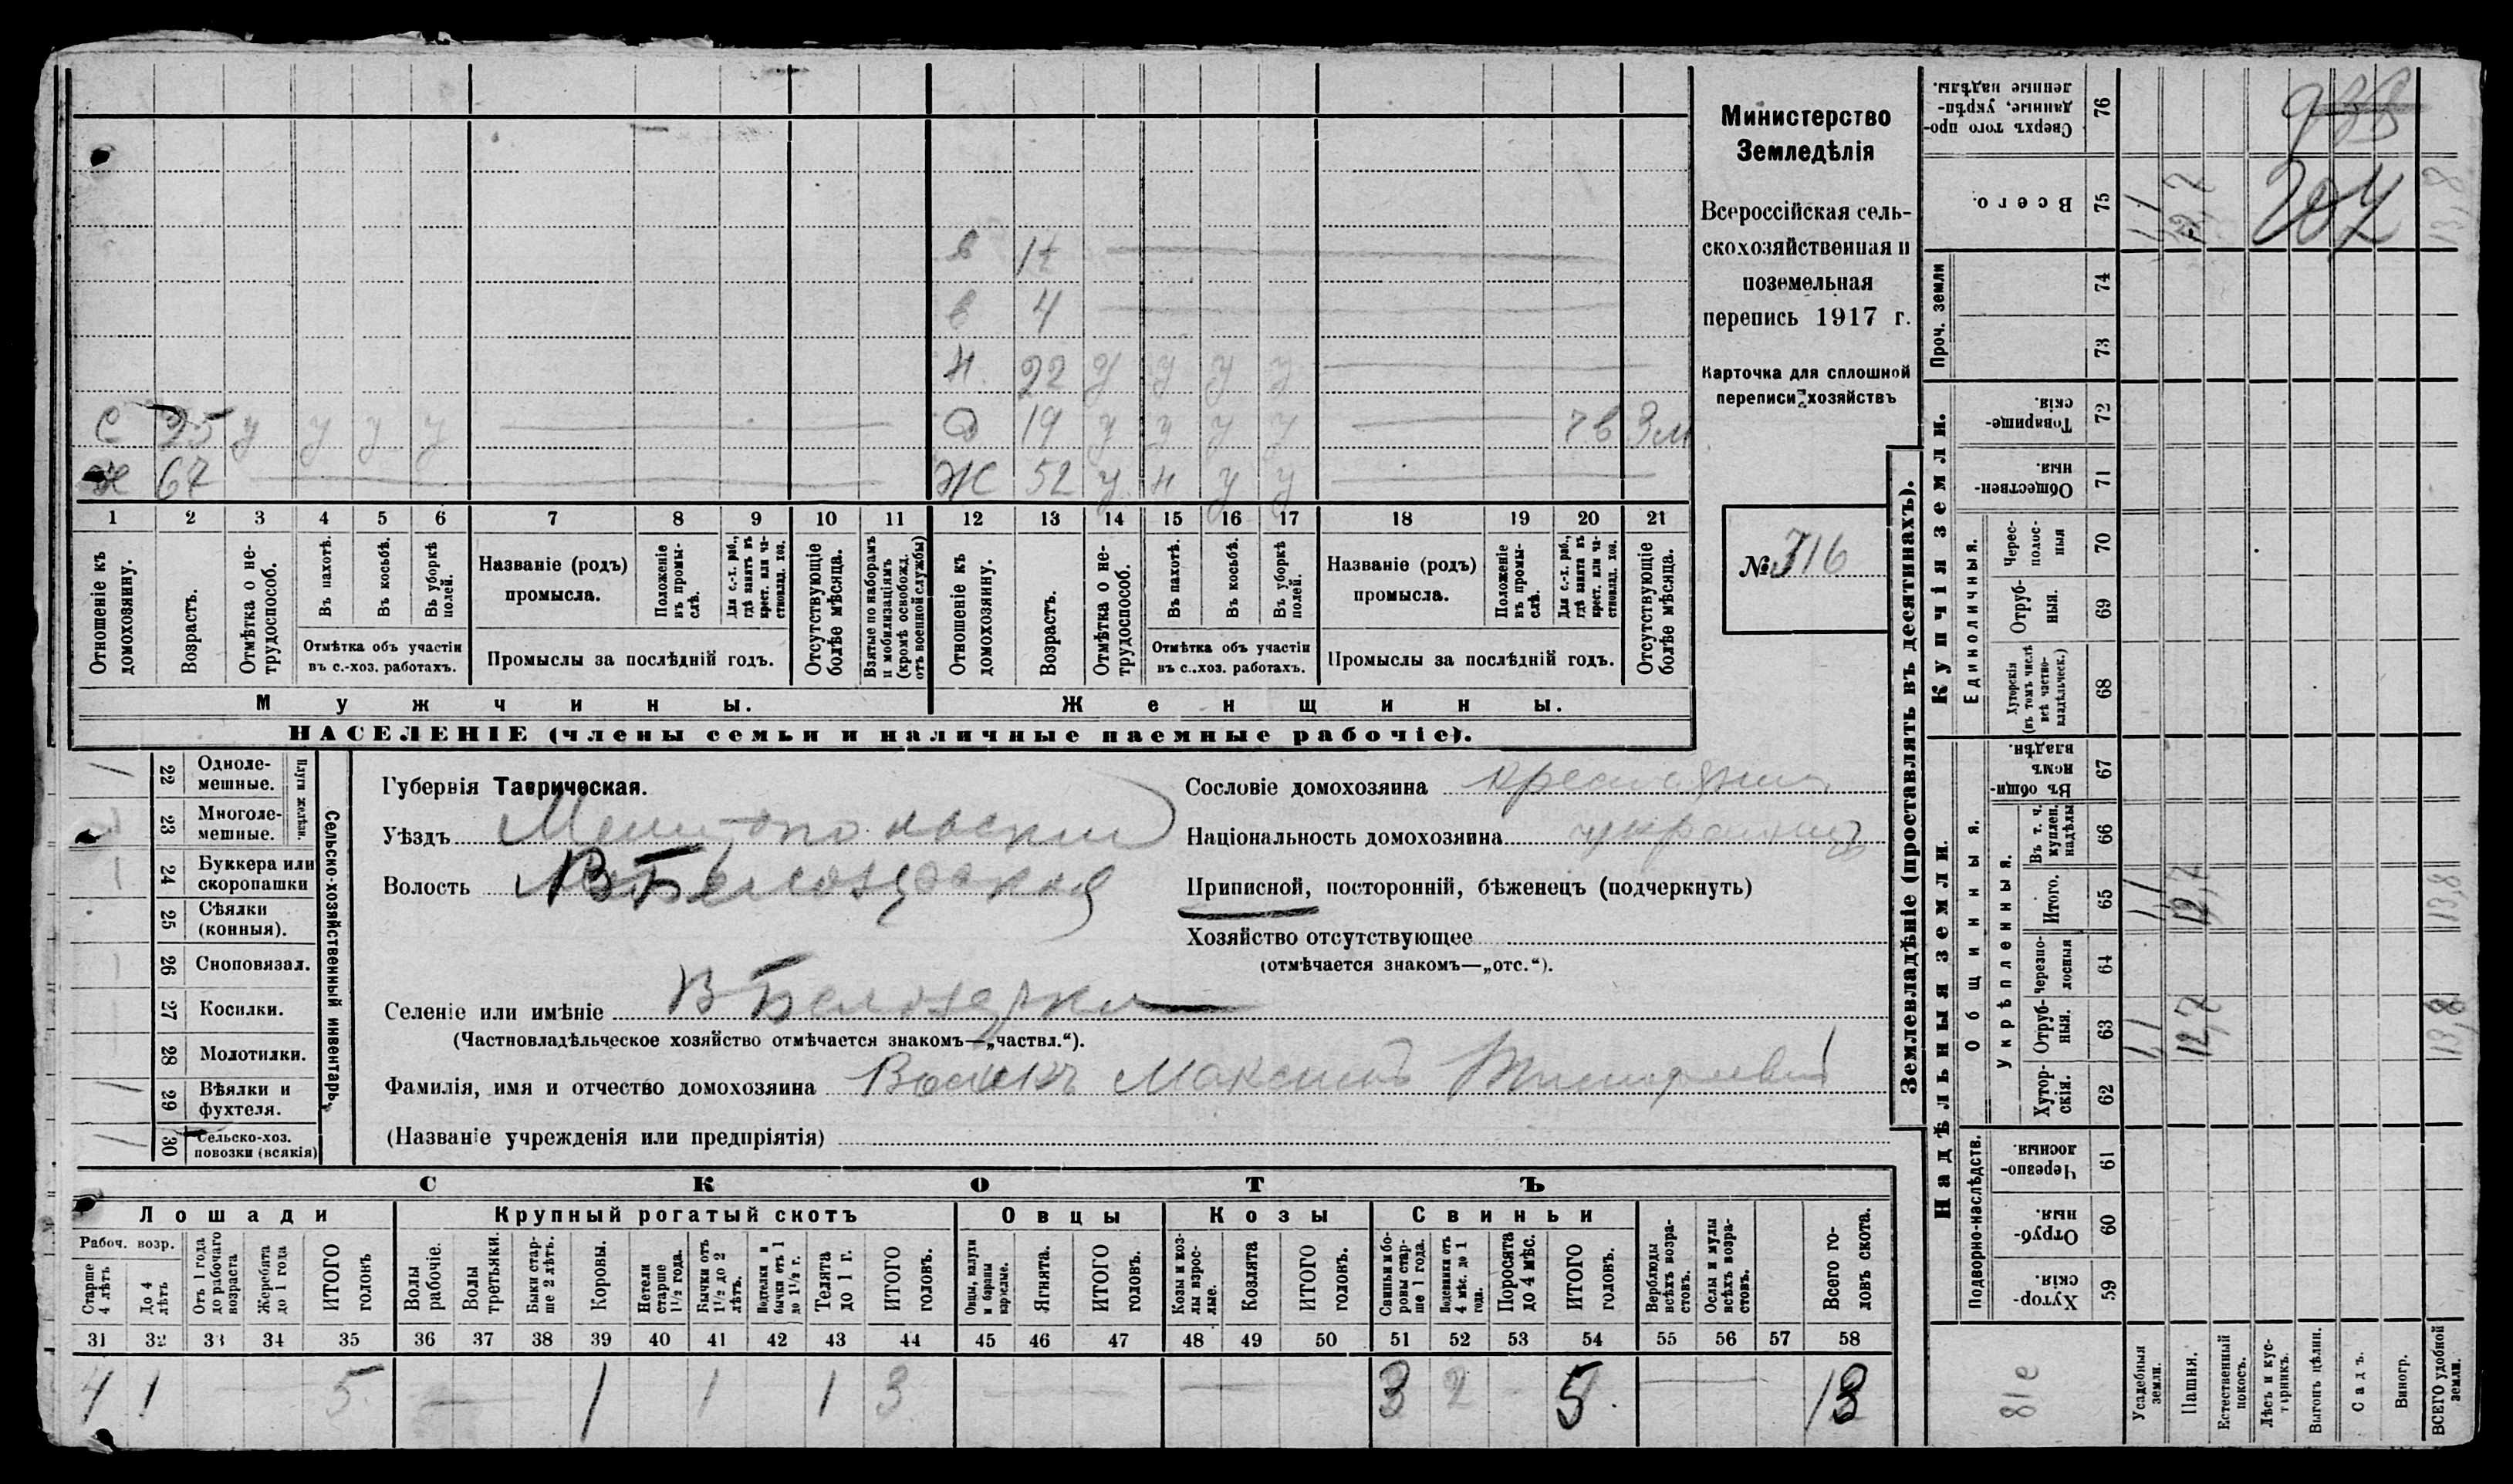 Министерство
Земледѣлія
Всероссійская сель-
скохозяйственная и
поземельная
перепись 1917 г.
Карточка для сплошной
переписи хозяйствъ
№ 316
в 1½
в 4
н 22 у у у у
с 25 у у у у
д 19 у у у у чв 3м
х 67
ж 52 у н у у
1 2 3 4 5 6 7 8 9 10 11 12 13 14 15 16 17 18 19 20 21
Отношеніе къ домохозяину.
Возрастъ.
Отмѣтка о не-трудоспособ.
Въ пахотѣ.
Въ косьбѣ.
Въ уборкѣ полей.
Отмѣтка объ участіи
въ с.-хоз. работахъ.
Названіе (родъ)
промысла.
Положеніе въ промы-слѣ.
Для с.-х. раб., гдѣ занятъ въ крест. или ча-стновлад. хоз.
Промыслы за послѣдній годъ.
Отсутствующіе болѣе мѣсяца.
Взятые по наборамъ и мобилизаціямъ (кромѣ освобожд. отъ военной службы)
Отношеніе къ домохозяину.
Возрастъ.
Отмѣтка о не-трудоспособ.
Въ пахотѣ.
Въ косьбѣ.
Въ уборкѣ полей.
Отмѣтка объ участіи
въ с.-хоз. работахъ.
Названіе (родъ)
промысла.
Положеніе въ промы-слѣ.
Для с.-х. раб., гдѣ занята въ крест. или ча-стновлад. хоз.
Промыслы за послѣдній годъ.
Отсутствующіе болѣе мѣсяца.
Мужчины.
Женщины.
НАСЕЛЕНІЕ (члены семьи и наличные наемные рабочіе).
22 Одноле-мешные.
23 Многоле-мешные.
Плуги желѣзн.
24 Буккера или скоропашки
25 Сѣялки (конныя).
26 Сноповязал.
27 Косилки.
28 Молотилки.
29 Вѣялки и фухтеля.
30 Сельско-хоз. повозки (всякія)
Сельско-хозяйственный инвентарь.
Губернія Таврическая.
Уѣздъ Мелитопольскій
Волость В Белозерская
Селеніе или имѣніе В Белозерка
(Частновладѣльческое хозяйство отмѣчается знакомъ—„частвл.“).
Фамилія, имя и отчество домохозяина Максимъ
(Названіе учрежденія или предпріятія)
Сословіе домохозяина крестьянин
Національность домохозяина украинецъ
Приписной, посторонній, бѣженецъ (подчеркнуть)
Хозяйство отсутствующее
(отмѣчается знакомъ—„отс.“).
СКОТЪ
Лошади
Крупный рогатый скотъ
Овцы
Козы
Свиньи
Рабоч. возр.
Старше 4 лѣтъ
До 4 лѣтъ
Отъ 1 года до рабочаго возраста
Жеребята до 1 года
ИТОГО головъ
Волы рабочіе.
Волы третьяки.
Быки стар-ше 2 лѣтъ.
Коровы.
Нетели старше 1½ года.
Бычки отъ 1½ до 2 лѣтъ.
Подтелки и бычки отъ 1 до 1½ г.
Телята до 1 г.
ИТОГО головъ.
Овцы, валухи и бараны взрослые.
Ягнята.
ИТОГО головъ.
Козы и коз-лы взрос-лые.
Козлята
ИТОГО головъ.
Свиньи и бо-ровы стар-ше 1 года.
Подсвинки отъ 4 мѣс. до 1 года.
Поросята до 4 мѣс.
ИТОГО головъ.
Верблюды всѣхъ возра-стовъ.
Ослы и мулы всѣхъ возра-стовъ.
Всего го-ловъ скота.
31 32 33 34 35 36 37 38 39 40 41 42 43 44 45 46 47 48 49 50 51 52 53 54 55 56 57 58
4 1 5 1 1 1 3 3 2 5 13
Землевладѣніе (проставлять въ десятинахъ).
Сверхъ того про-данные, укрѣп-ленные надѣлы. 76
938
Всего. 75
1,1 12,7 204 13,8
Проч. земли
74
73
Купчія земли.
Товарище-скія. 72
Обществен-ныя. 71
Единоличныя.
Черес-полос-ныя 70
Отруб-ныя. 69
Хуторскія (въ томъ числѣ всѣ частно-владѣльческ.) 68
Надѣльныя земли.
Общинныя.
Въ общи-номъ владѣн. 67
Укрѣпленныя.
Въ т. ч. куплен. надѣлы 66
Итого. 65
1,1 12,7 13,8
Черезпо-лосныя 64
Отруб-ныя. 63
1,1 12,7 13,8
Хутор-скія. 62
Подворно-наслѣдств.
Черезпо-лосныя. 61
Отруб-ныя. 60
Хутор-скія. 59
Усадебныя земли.
Пашня.
Естественный покосъ.
Лѣсъ и кус-тарникъ.
Выгонъ цѣлин.
Садъ.
Виногр.
ВСЕГО удобной земли.